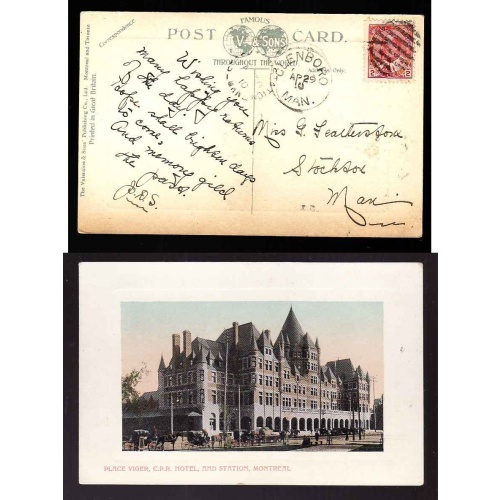 FAMOUS
POST CARD.
V & SONS
THROUGHOUT THE WORLD
Correspondence.
The Valentine & Sons' Publishing Co., Ltd. Montreal and Toronto
Printed in Great Britain.
AP 29
10
MAN.
Wishing you
many happy returns
of the day.
Hope shall brighten days
to come,
And memory gild
the past.
Mrs G.
Stockton
Man
PLACE VIGER, C.P.R. HOTEL, AND STATION, MONTREAL